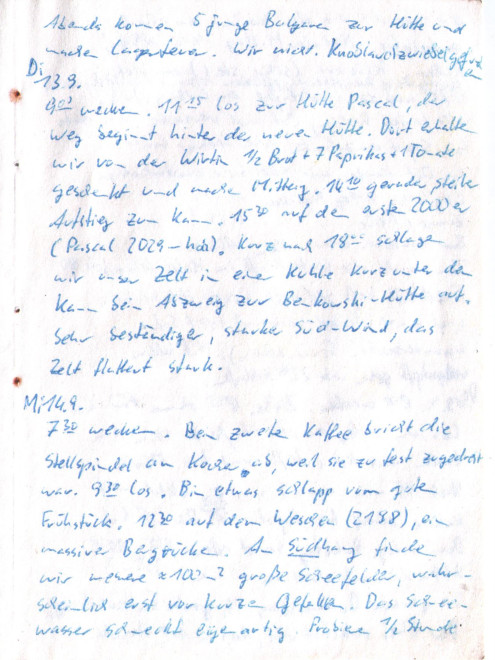 Abends kommen 5 junge Bulgaren zur Hütte und
machen Lagerfeuer. Wir nicht. Knoblauchzwiebel gefunden
Di
13.9.
9⁰⁰ wecken. 11¹⁵ los zur Hütte Pascal, der
Weg beginnt hinter der neuen Hütte. Dort erhalten
wir von der Wirtin 1/2 Brot + 7 Paprikas + 1 Tomate
geschenkt und machen Mittag. 14¹⁰ gerader, steiler
Aufstieg zum Kamm. 15³⁰ auf dem ersten 2000er
(Pascal 2029 m hoch). Kurz nach 18⁰⁰ schlagen
wir unser Zelt in einer Kuhle kurz unter dem
Kamm beim Abzweig zur Benkowski-Hütte auf.
Sehr beständiger, starker Süd-Wind, das
Zelt flattert stark.
Mi 14.9.
7³⁰ wecken. Beim zweiten Kaffee bricht die
Stellspindel am Kocher ab, weil sie zu fest zugedreht
war. 9³⁰ los. Bin etwas schlapp vom guten
Frühstück. 12³⁰ auf dem Weschen (2198), ein
massiver Bergrücken. Am Südhang finden
wir mehrere ≈100 m² große Schneefelder, wahr-
scheinlich erst vor kurzem gefallen. Das Schnee-
wasser schmeckt eigenartig. 1/2 Stunde